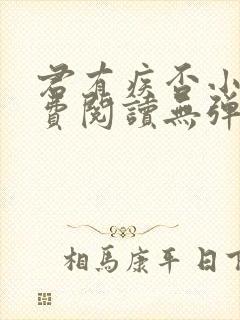 君有疾否小
費閱讀無彈
相馬康平日下